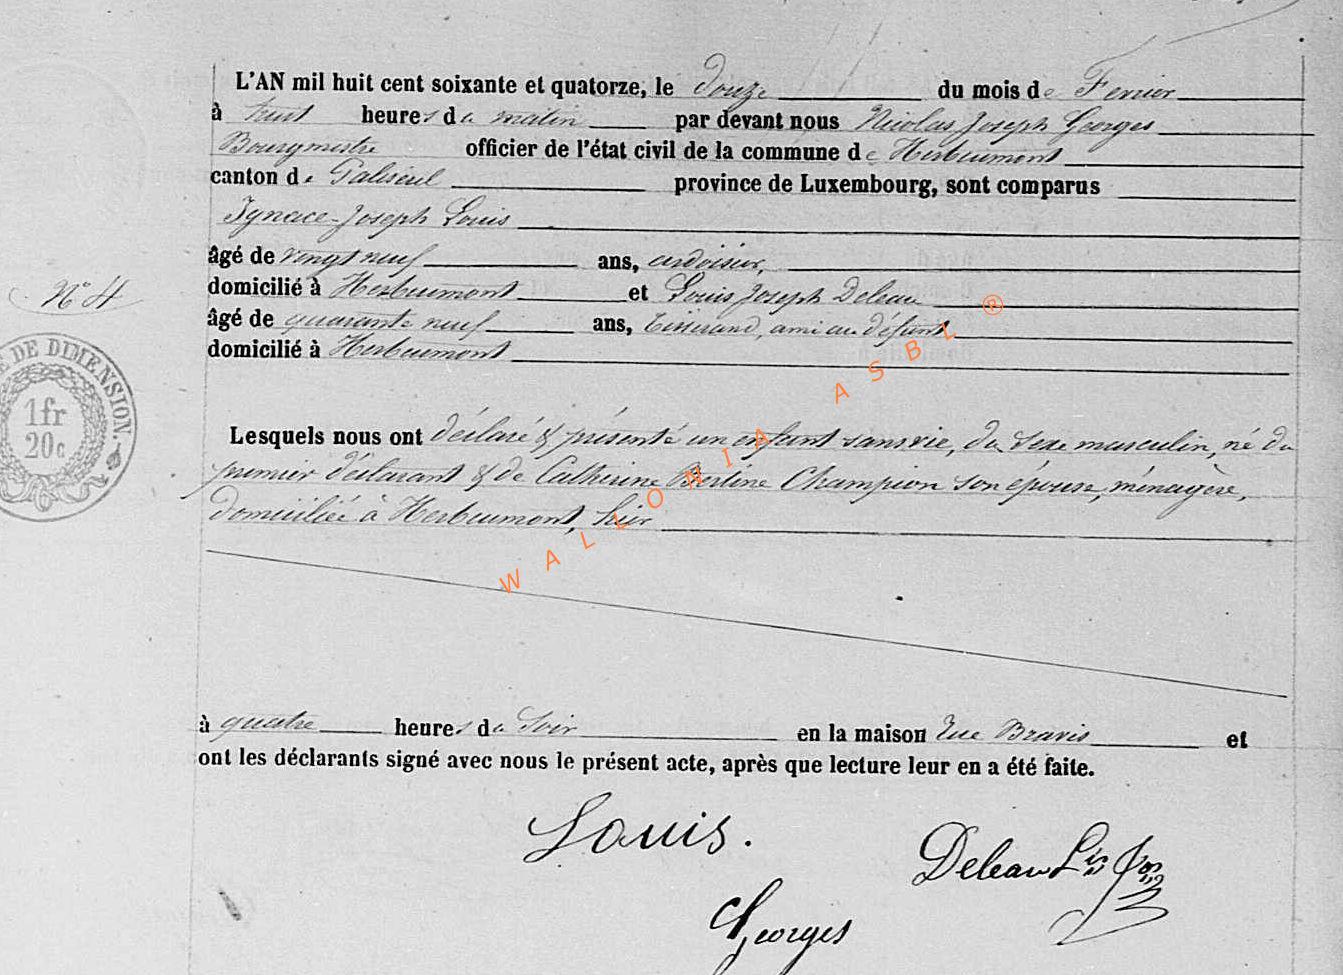 L'AN mil huit cent soixante et quatorze, le douze du mois de Fevrier
à huit heures du matin par devant nous Nicolas Joseph Georges
Bourgmestre officier de l'état civil de la commune de Herbeumont
canton de Paliseul province de Luxembourg, sont comparus
Ignace-Joseph Louis
âgé de vingt neuf ans, ardoisier,
domicilié à Herbeumont et Louis Joseph Deleau
âgé de quarante neuf ans, tisserand, ami au défunt
domicilié à Herbeumont
N° 4
E DE DIMENSION.
1fr
20c
Lesquels nous ont déclaré & présenté un enfant sans vie, du sexe masculin, né du
premier déclarant & de Catherine Bertine Champion son épouse, ménagère,
domiciliée à Herbeumont, hier
WALLONIA ASBL ®
à quatre heures du soir en la maison rue Bravis et
ont les déclarants signé avec nous le présent acte, après que lecture leur en a été faite.
Louis.
Deleau Ls Jos
Georges